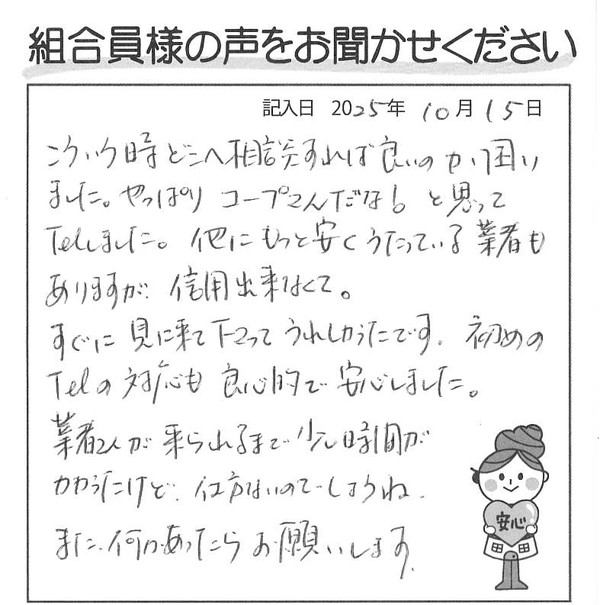 組合員様の声をお聞かせください
記入日 2025年 10月 15日
こういう時どこへ相談すれば良いのかり困り
ました。やっぱり コープさんだな! と思って
Telしました。他にもっと安くうたっている業者も
ありますが 信用出来なくて。
すぐに見に来て下さってうれしかったです。初めの
Telの対応も良心的で安心しました。
業者さんが来られるまで少し時間が
かかったけど、仕方ないのでしょうね。
また、何かあったらお願いします。
安心